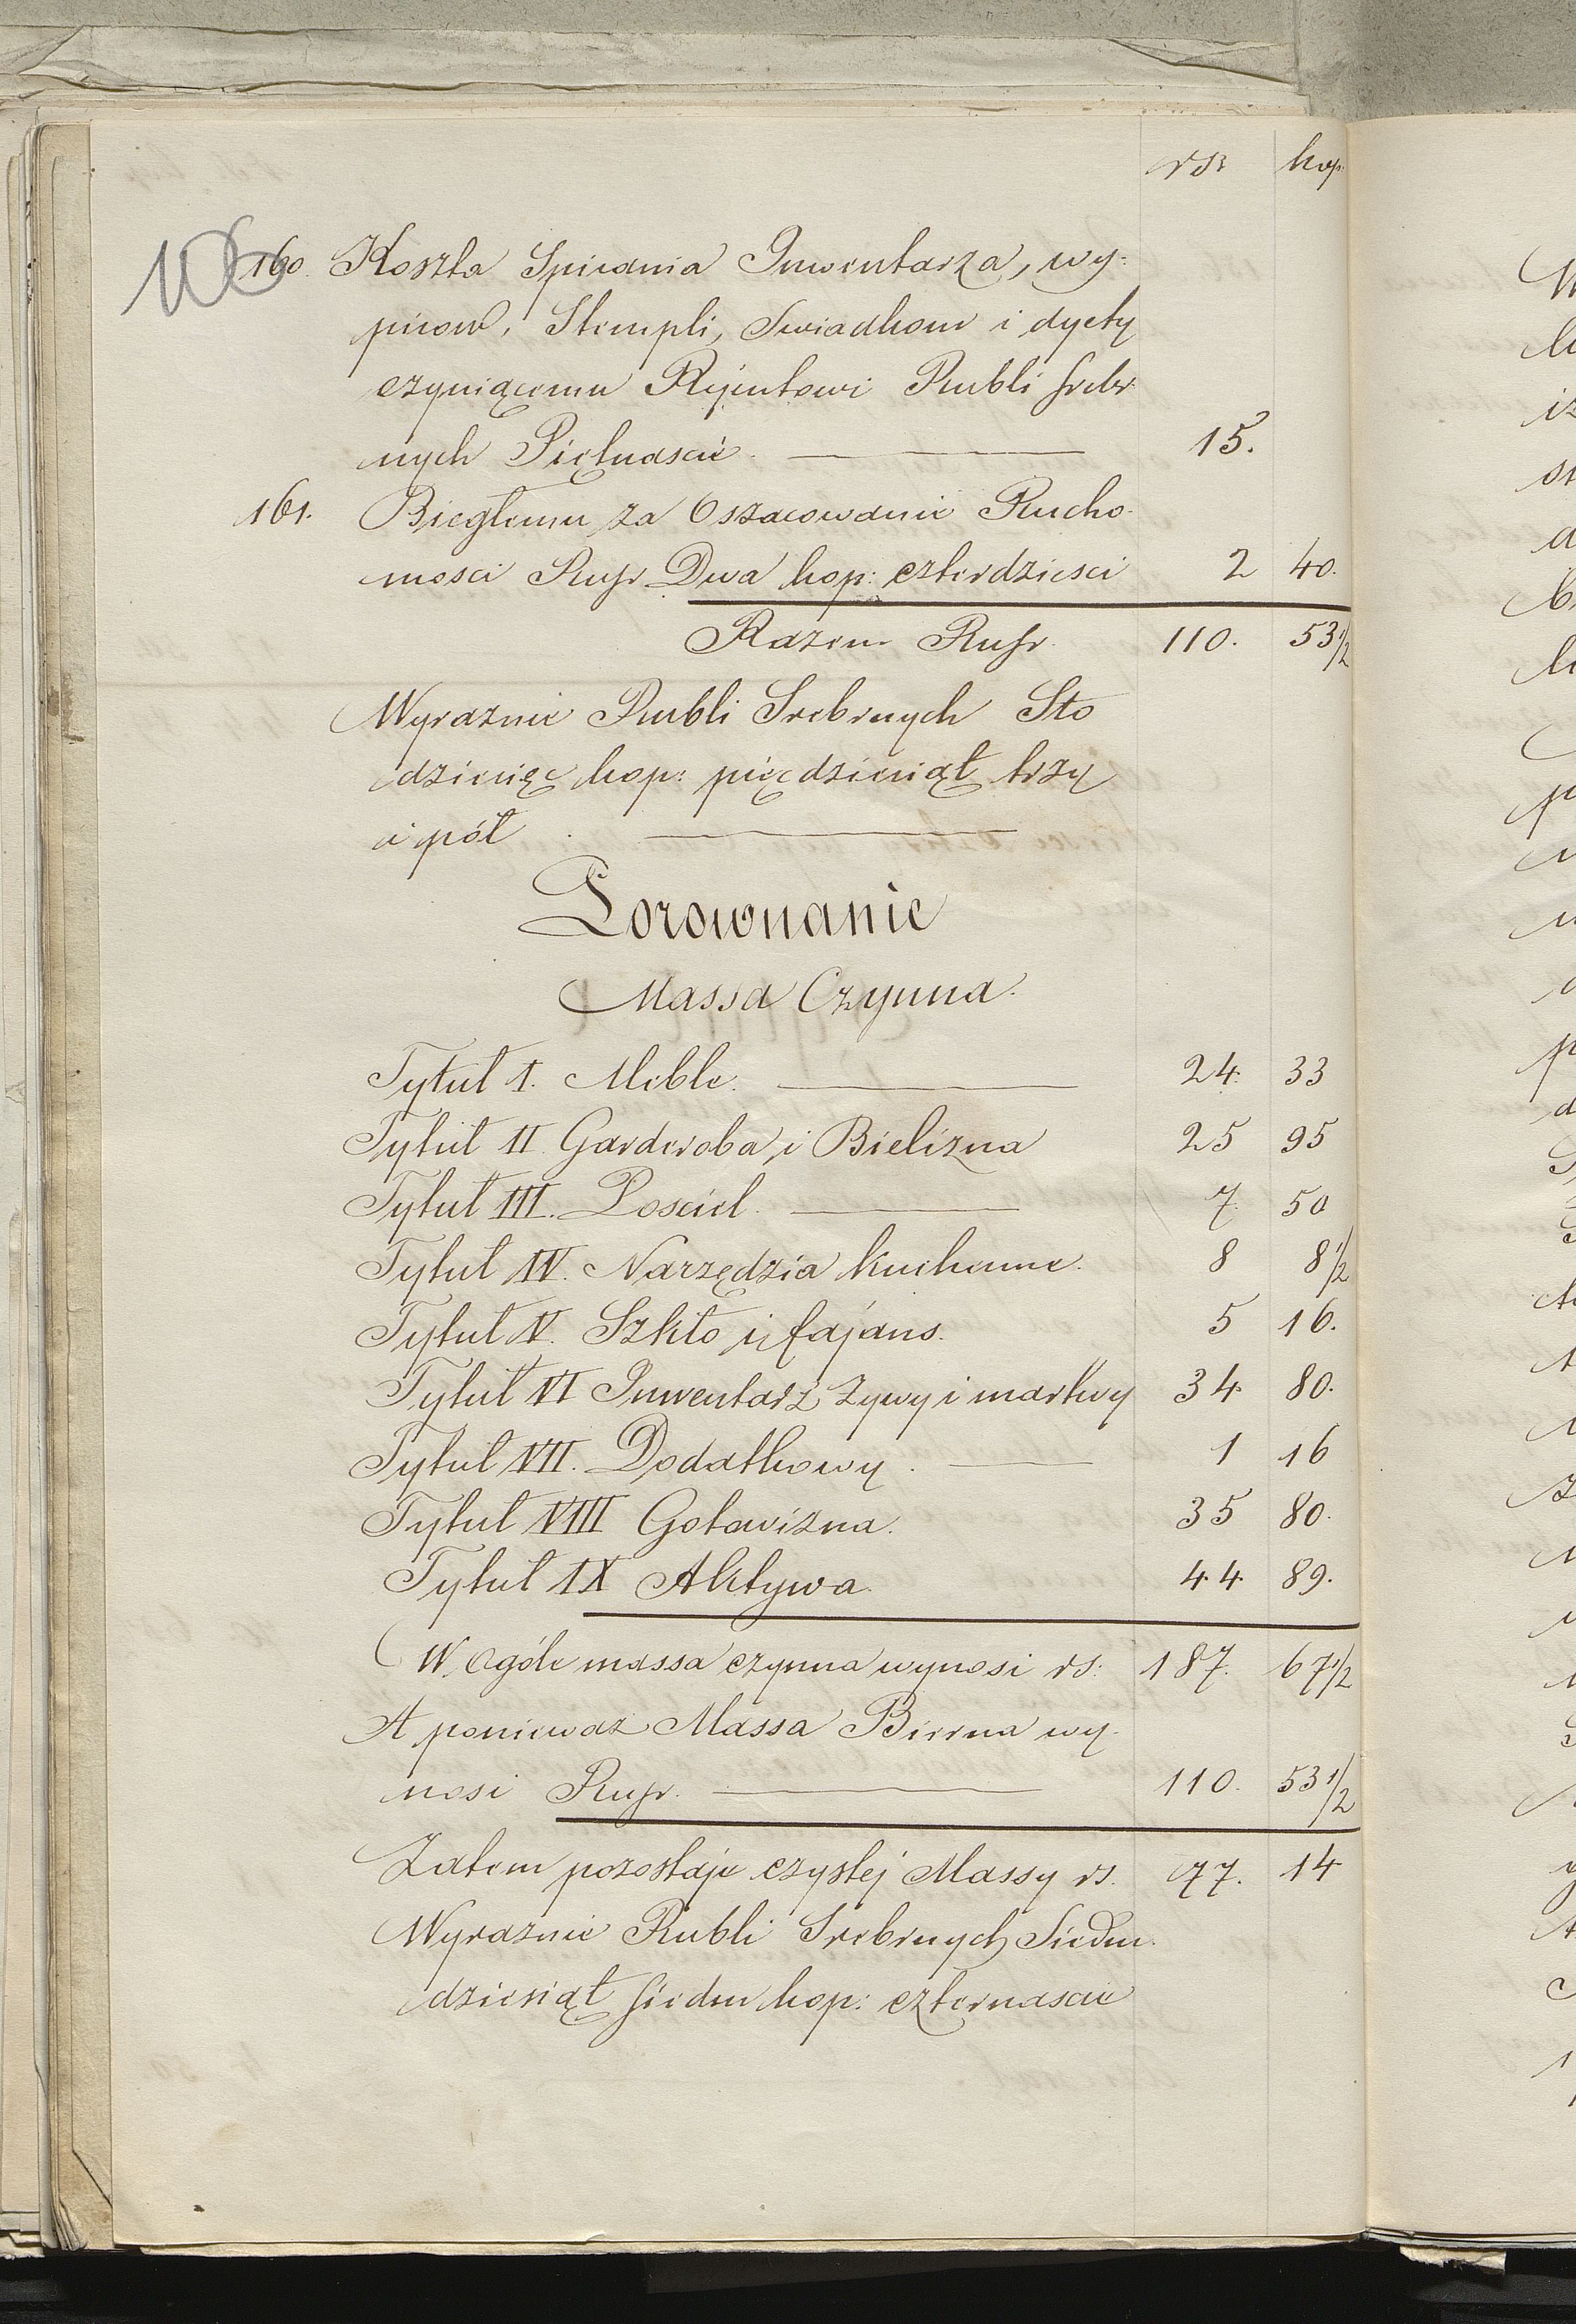 rsr kop.
106
160. Koszta Spisania Inwentarza, wy-
pisow, Stempli, Swiadkom i dyety
czyniącemu Rejentowi Rubli srebr
nych Piętnascie. 15.
161. Biegłemu za Oszacowanie Rucho-
mosci Rusr Dwa kop: czterdziesci 2 40.
Razem Rusr. 110. 53 1/2
Wyraznie Rubli Srebrnych Sto
dziesięc kop: pięcdziesiąt trzy
i pół.
Porownanie
Massa Czynna.
Tytuł I. Meble. 24. 33
Tytuł II. Garderoba i Bielizna 25 95
Tytuł III. Posciel. 7. 50
Tytuł IV. Narzędzia kuchenne. 8 8 1/2
Tytuł V. Szkło i fajans. 5 16.
Tytuł VI Inwentarz zywy i martwy 34. 80.
Tytuł VII. Dodatkowy. 1 16
Tytuł VIII Gotowizna. 35 80.
Tytuł IX Aktywa. 44. 89.
W Ogóle massa czynna wynosi rs: 187. 67 1/2
A poniewaz Massa Bierna wy-
nosi Rusr. 110. 53 1/2
Zatem pozostaje czystej Massy rs. 77. 14
Wyraznie Rubli Srebrnych Siedm-
dziesiąt siedm kop: czternascie